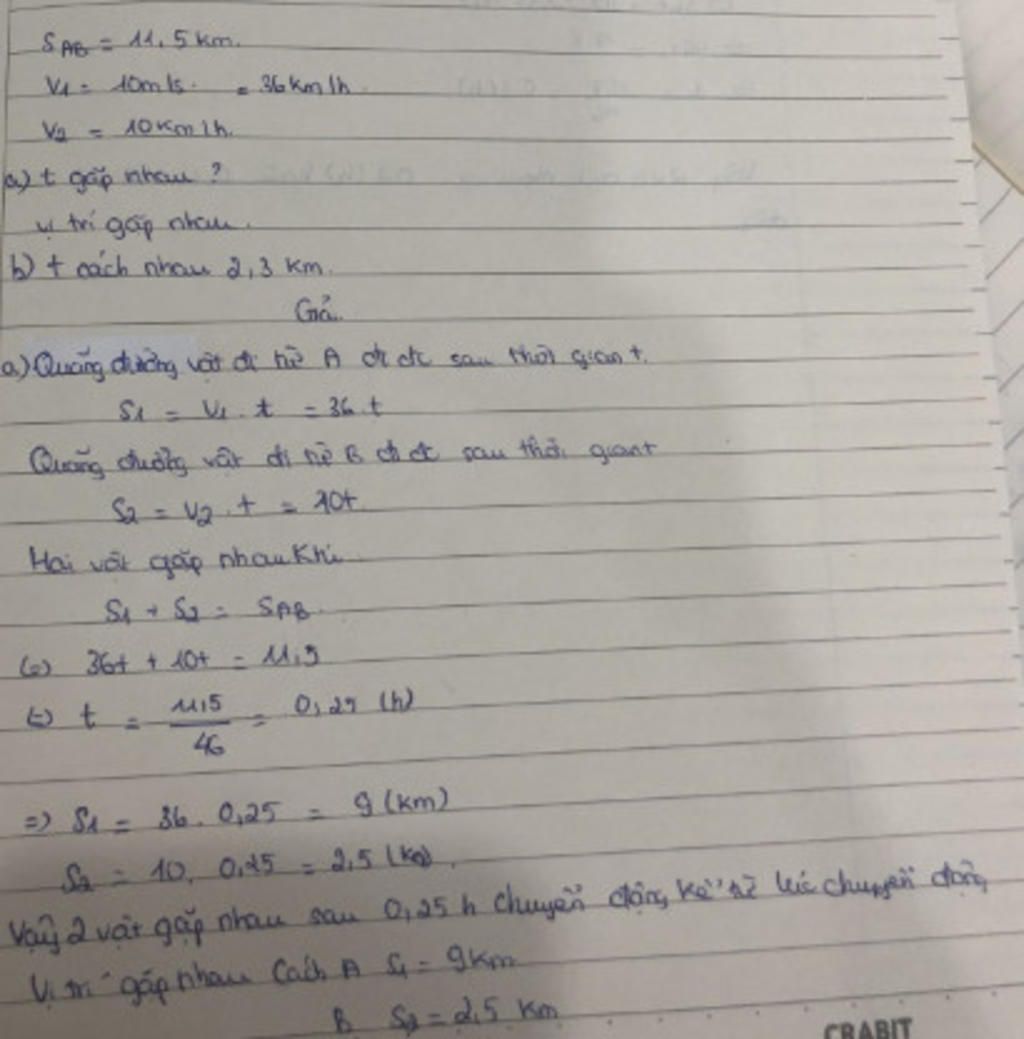 SAB = 11,5 km.
V1 = 10m/s. = 36km/h.
V2 = 10km/h.
a) t gặp nhau?
vị trí gặp nhau.
b) t cách nhau 2,3 km.
Giả
a) Quãng đường vật đi từ A đi đc sau thời gian t.
S1 = V1 . t = 36.t
Quãng đường vật đi từ B đi đc sau thời gian t
S2 = V2 . t = 10t.
Hai vật gặp nhau khi
S1 + S2 = SAB.
(=) 36t + 10t = 11,5
(=) t = 11,5 / 46 = 0,25 (h)
=) S1 = 36. 0,25 = 9 (km)
S2 = 10. 0,25 = 2,5 (km).
Vậy 2 vật gặp nhau sau 0,25 h chuyển động kể từ lúc chuyển động
Vị trí gặp nhau Cách A S1 = 9km
B S2 = 2,5 km
CRABIT